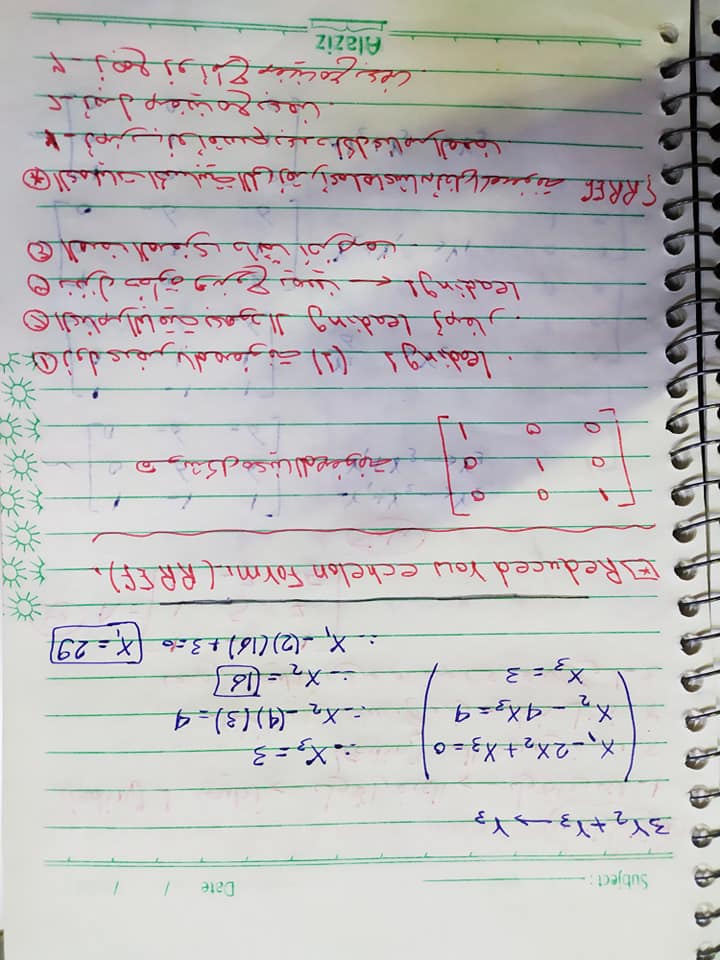 Subject: Date / /
3r₂ + r₃ → r₃
X₁ - 2X₂ + X₃ = 0 ∴ X₃ = 3
X₂ - 4X₃ = 4 ∴ X₂ - (4)(3) = 4
X₃ = 3 ∴ X₂ = 16
∴ X₁ - (2)(16) + 3 = 0 X₁ = 29
Reduced row echelon Form. (RREF).
1 0 0
0 1 0 هو شكل معين للمصفوفة
0 0 1
① أول عنصر بالمصفوفة (1) leading 1.
② العناصر الباقية بعمود الـ leading أصفار.
③ ننزل خطوة ونروح يمين ← leading 1
④ الصف الصفري دائمًا آخر صف.
* العمليات الحسابية اللي نقدر أعملها عشان نخلي المصفوفة RREF؟
١- نضرب أو أقسم بعدد لكل عناصر الصف.
٢- نبدل صفين مع بعض.
٣- نجمع أو أطرح صفين مع بعض.
Alaziz